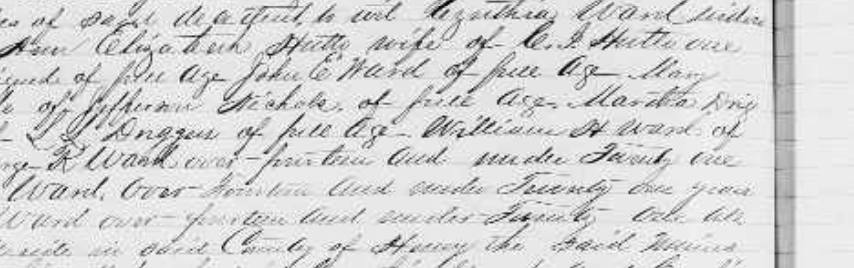 of said decedent, to wit Cynthia Ward widow
Ann Elizabeth Hutto wife of C. J. Hutto one
of full Age John E Ward of full Age Mary
of Jefferson Nichols of full Age. Martha Drig
Driggers of full Age William H Ward of
R Ward over fourteen And under Twenty one
Ward, Over fourteen And under Twenty One years
Ward over fourteen And under Twenty one all
in said County of Henry the Said minors